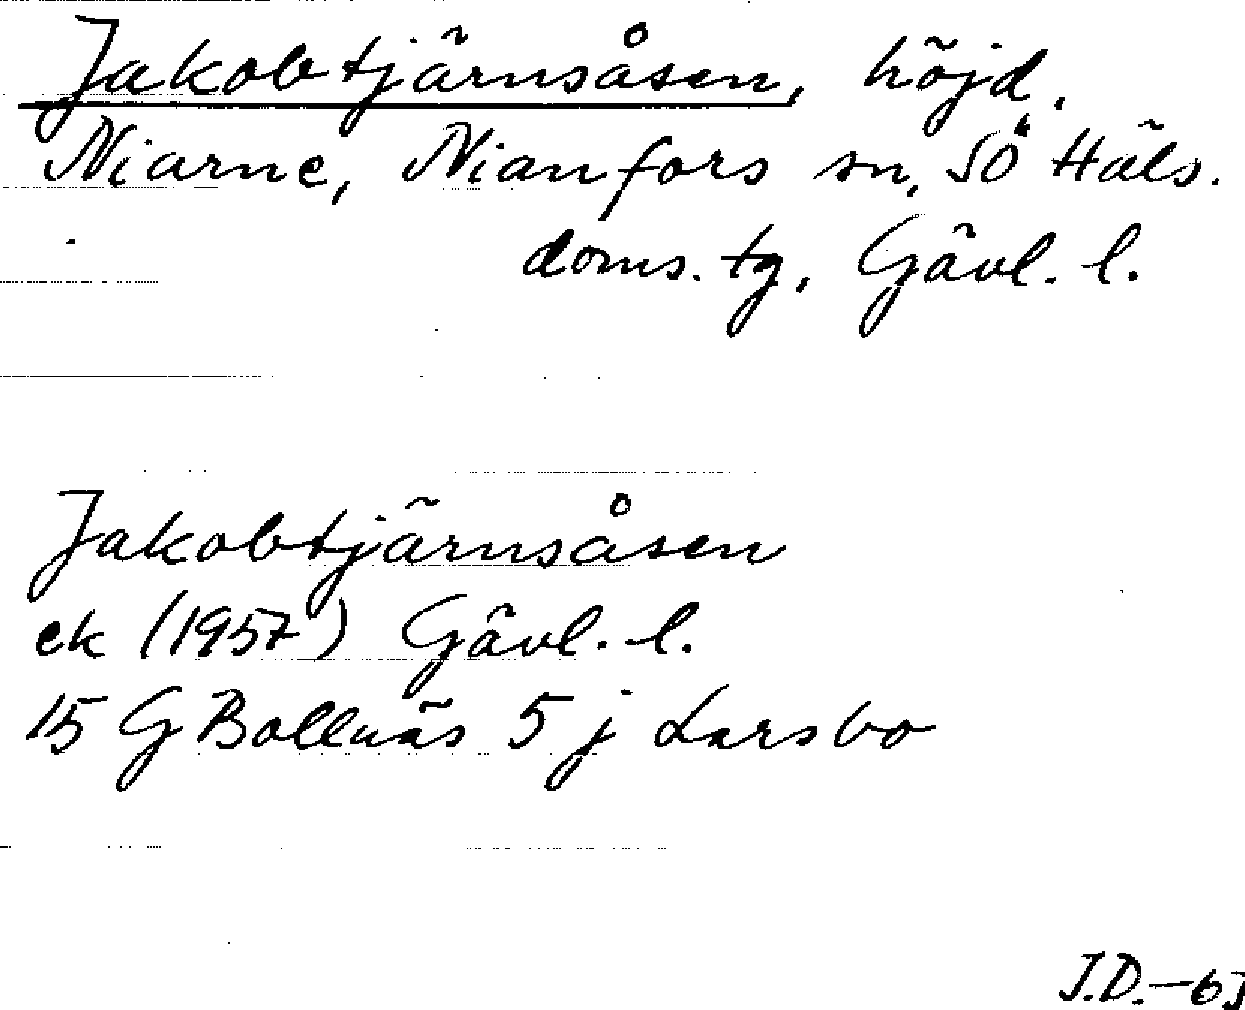 Jakobtjärnsåsen, höjd.
Niarne, Nianfors sn, SÖ Häls.
doms. tg, Gävl. l.
Jakobtjärnsåsen
ek (1957) Gävl. l.
15 G Bollnäs 5 j Larsbo
J.D.-63